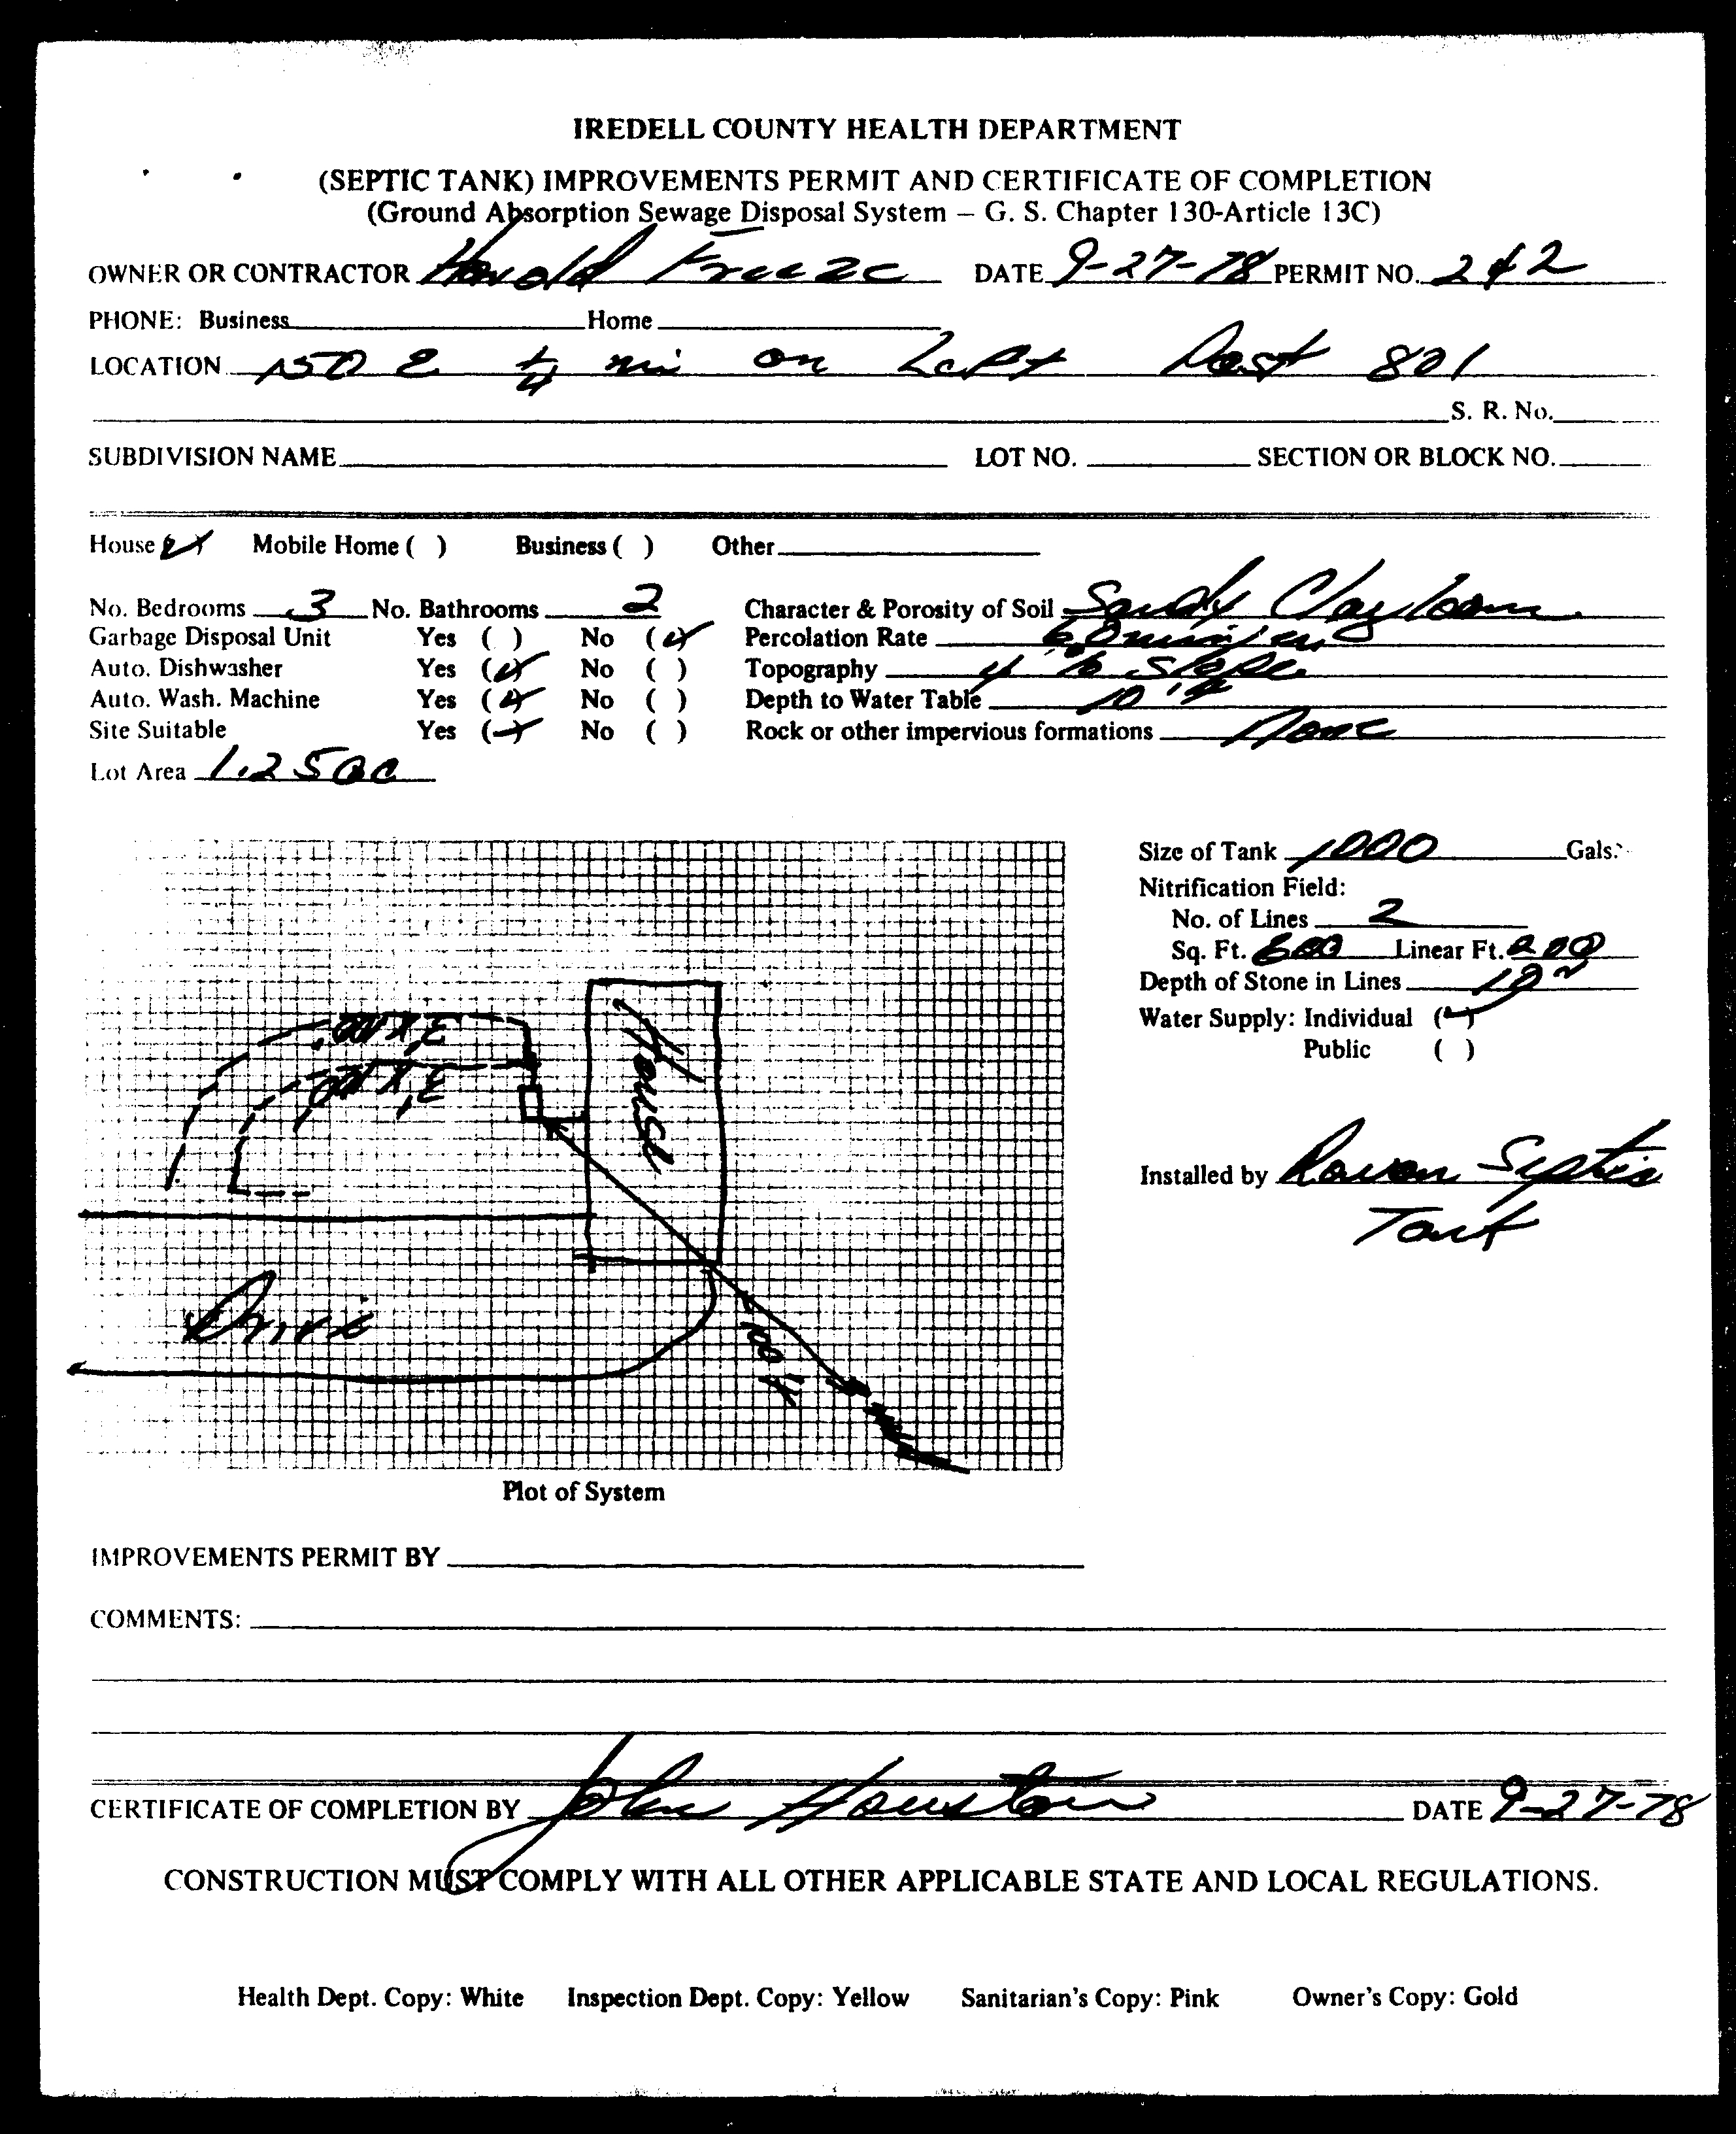 IREDELL COUNTY HEALTH DEPARTMENT
(SEPTIC TANK) IMPROVEMENTS PERMIT AND CERTIFICATE OF COMPLETION
(Ground Absorption Sewage Disposal System – G. S. Chapter 130-Article 13C)
OWNER OR CONTRACTOR Harold Freeze DATE 9-27-78 PERMIT NO. 242
PHONE: Business Home
LOCATION 150 E 1/4 mi on Left Past 801
S. R. No.
SUBDIVISION NAME LOT NO. SECTION OR BLOCK NO.
House Mobile Home ( ) Business ( ) Other
No. Bedrooms 3 No. Bathrooms 2 Character & Porosity of Soil Sandy Clay loam
Garbage Disposal Unit Yes ( ) No (✓) Percolation Rate 60 min/in
Auto. Dishwasher Yes (✓) No ( ) Topography 4 % slope
Auto. Wash. Machine Yes (✓) No ( ) Depth to Water Table 10'
Site Suitable Yes (✓) No ( ) Rock or other impervious formations None
Lot Area 1.25 ac
Size of Tank 1000 Gals.
Nitrification Field:
No. of Lines 2
Sq. Ft. 600 Linear Ft. 200
Depth of Stone in Lines
Water Supply: Individual (✓)
Public ( )
Installed by Rowan Septic
Tank
3' x 100'
3' x 100'
House
Drive
100'
Plot of System
IMPROVEMENTS PERMIT BY
COMMENTS:
CERTIFICATE OF COMPLETION BY John Houston DATE 9-27-78
CONSTRUCTION MUST COMPLY WITH ALL OTHER APPLICABLE STATE AND LOCAL REGULATIONS.
Health Dept. Copy: White Inspection Dept. Copy: Yellow Sanitarian's Copy: Pink Owner's Copy: Gold